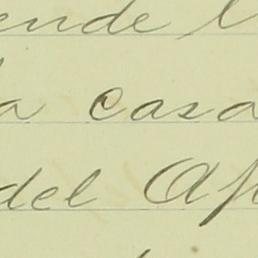 ende l
a casa
del Ap